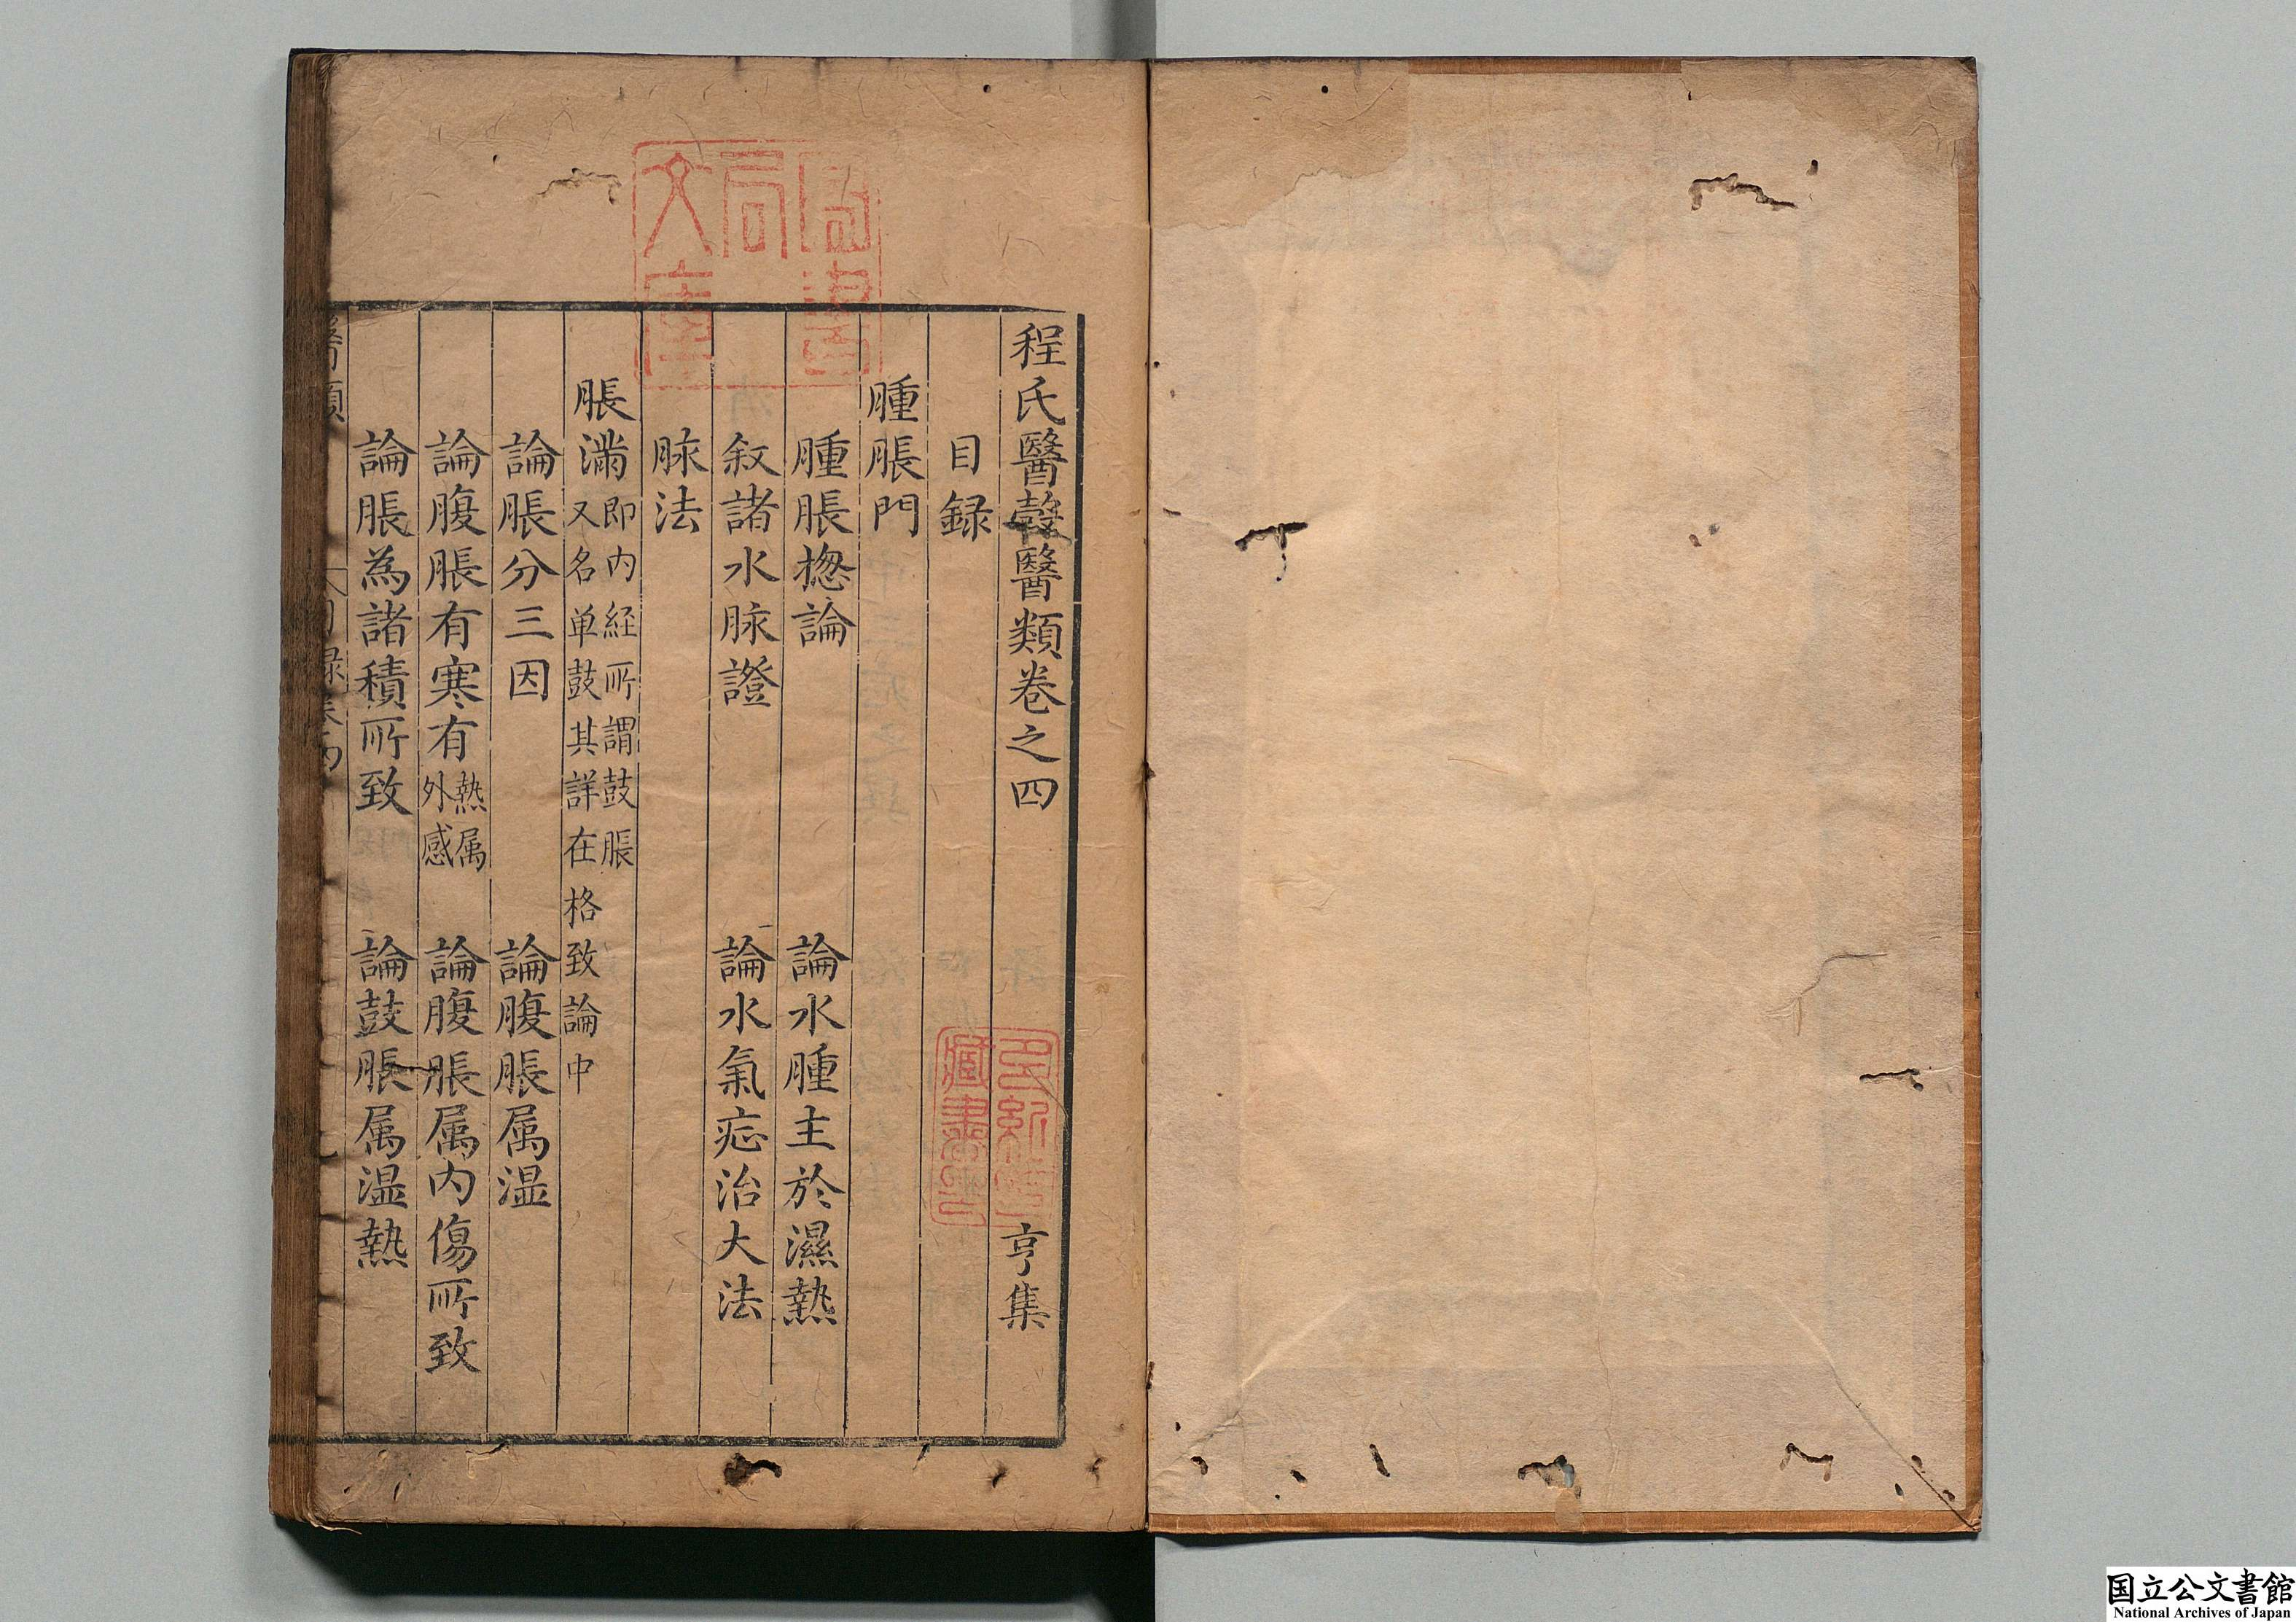 程氏醫彀醫類卷之四 亨集
目録
腫脹門
腫脹揔論 論水腫主於濕熱
叙諸水脉證 論水氣𤴤治大法
脉法
脹滿 即内経所謂鼓脹
又名单鼓其詳在格致論中
論脹分三因 論腹脹属湿
論腹脹有寒有 熱属
外感 論腹脹属内傷所致
論脹為諸積所致 論鼓脹属湿熱
醫類 目録卷四
文
書
藏書
国立公文書館
National Archives of Japan